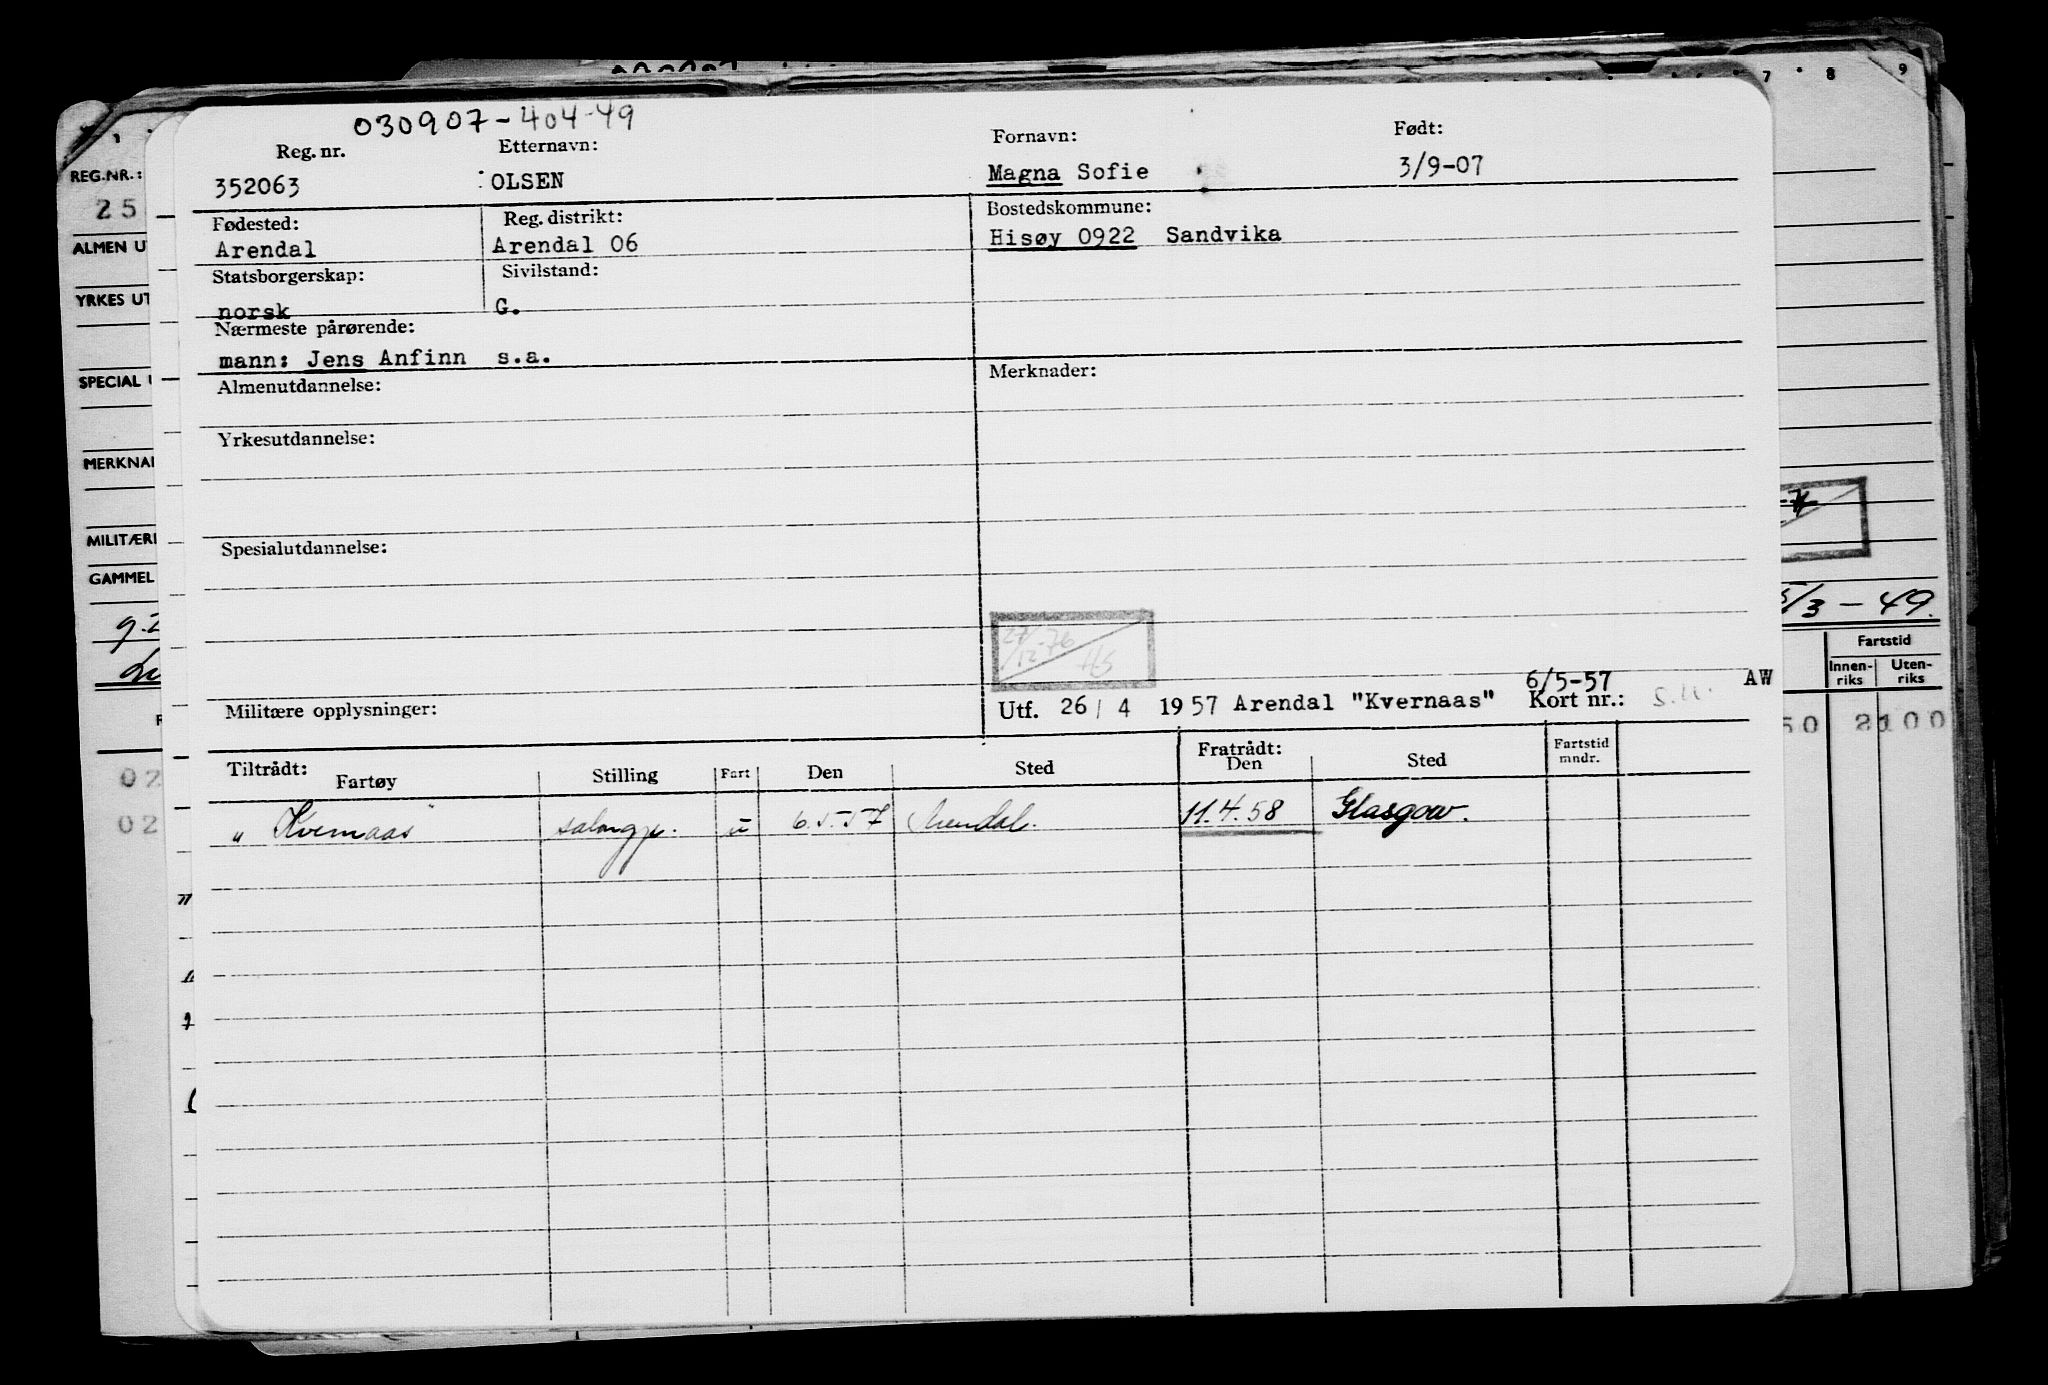 030907-404-49
Reg. nr. Etternavn: Fornavn: Født:
352063 OLSEN Magna Sofie 3/9-07
Fødested: Reg. distrikt: Bostedskommune:
Arendal Arendal 06 Hisøy 0922 Sandvika
Statsborgerskap: Sivilstand:
norsk G.
Nærmeste pårørende:
mann: Jens Anfinn s.a.
Almenutdannelse: Merknader:
Yrkesutdannelse:
Spesialutdannelse:
27/12-76 HS
Militære opplysninger:
6/5-57 AW
Utf. 26/4 1957 Arendal "Kvernaas" Kort nr.:
Tiltrådt: Fratrådt:
Fartøy Stilling Fart Den Sted Den Sted Fartstid mndr.
"Kvernaas" salongp. u 6.5.57 Arendal. 11.4.58 Glasgow.
REG.NR.:
25
ALMEN U
YRKES UT
SPECIAL U
MERKNA
MILITÆR
GAMMEL
02
02
7 8 9
5/3-49.
Fartstid
Innen-riks Uten-riks
50 2100